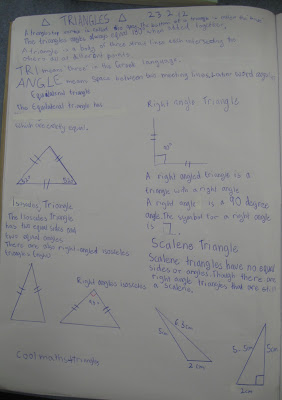 △ TRIANGLES △
The triangles angles always equal 180° when added together.
A triangle is a body of three lines each intersecting the
others at different points.
TRI means three in the Greek language.
ANGLE means space between two meeting lines
Equilateral triangle
The Equilateral triangle has
which are exactly equal.
Isosceles Triangle
The Isosceles Triangle
has two equal sides and
two equal angles
There are also right-angled isosceles
triangles
Right angled isosceles
Coolmath4triangles
Right angle Triangle
90°
A right angled triangle is a
triangle with a right angle
A right angle is a 90 degree
angle. The symbol for a right angle
is
Scalene Triangle
Scalene triangles have no equal
sides or angles. Though there are
right angle triangles that are still
a scalene.
6.3cm
5cm
2cm
5.5cm
5cm
2cm